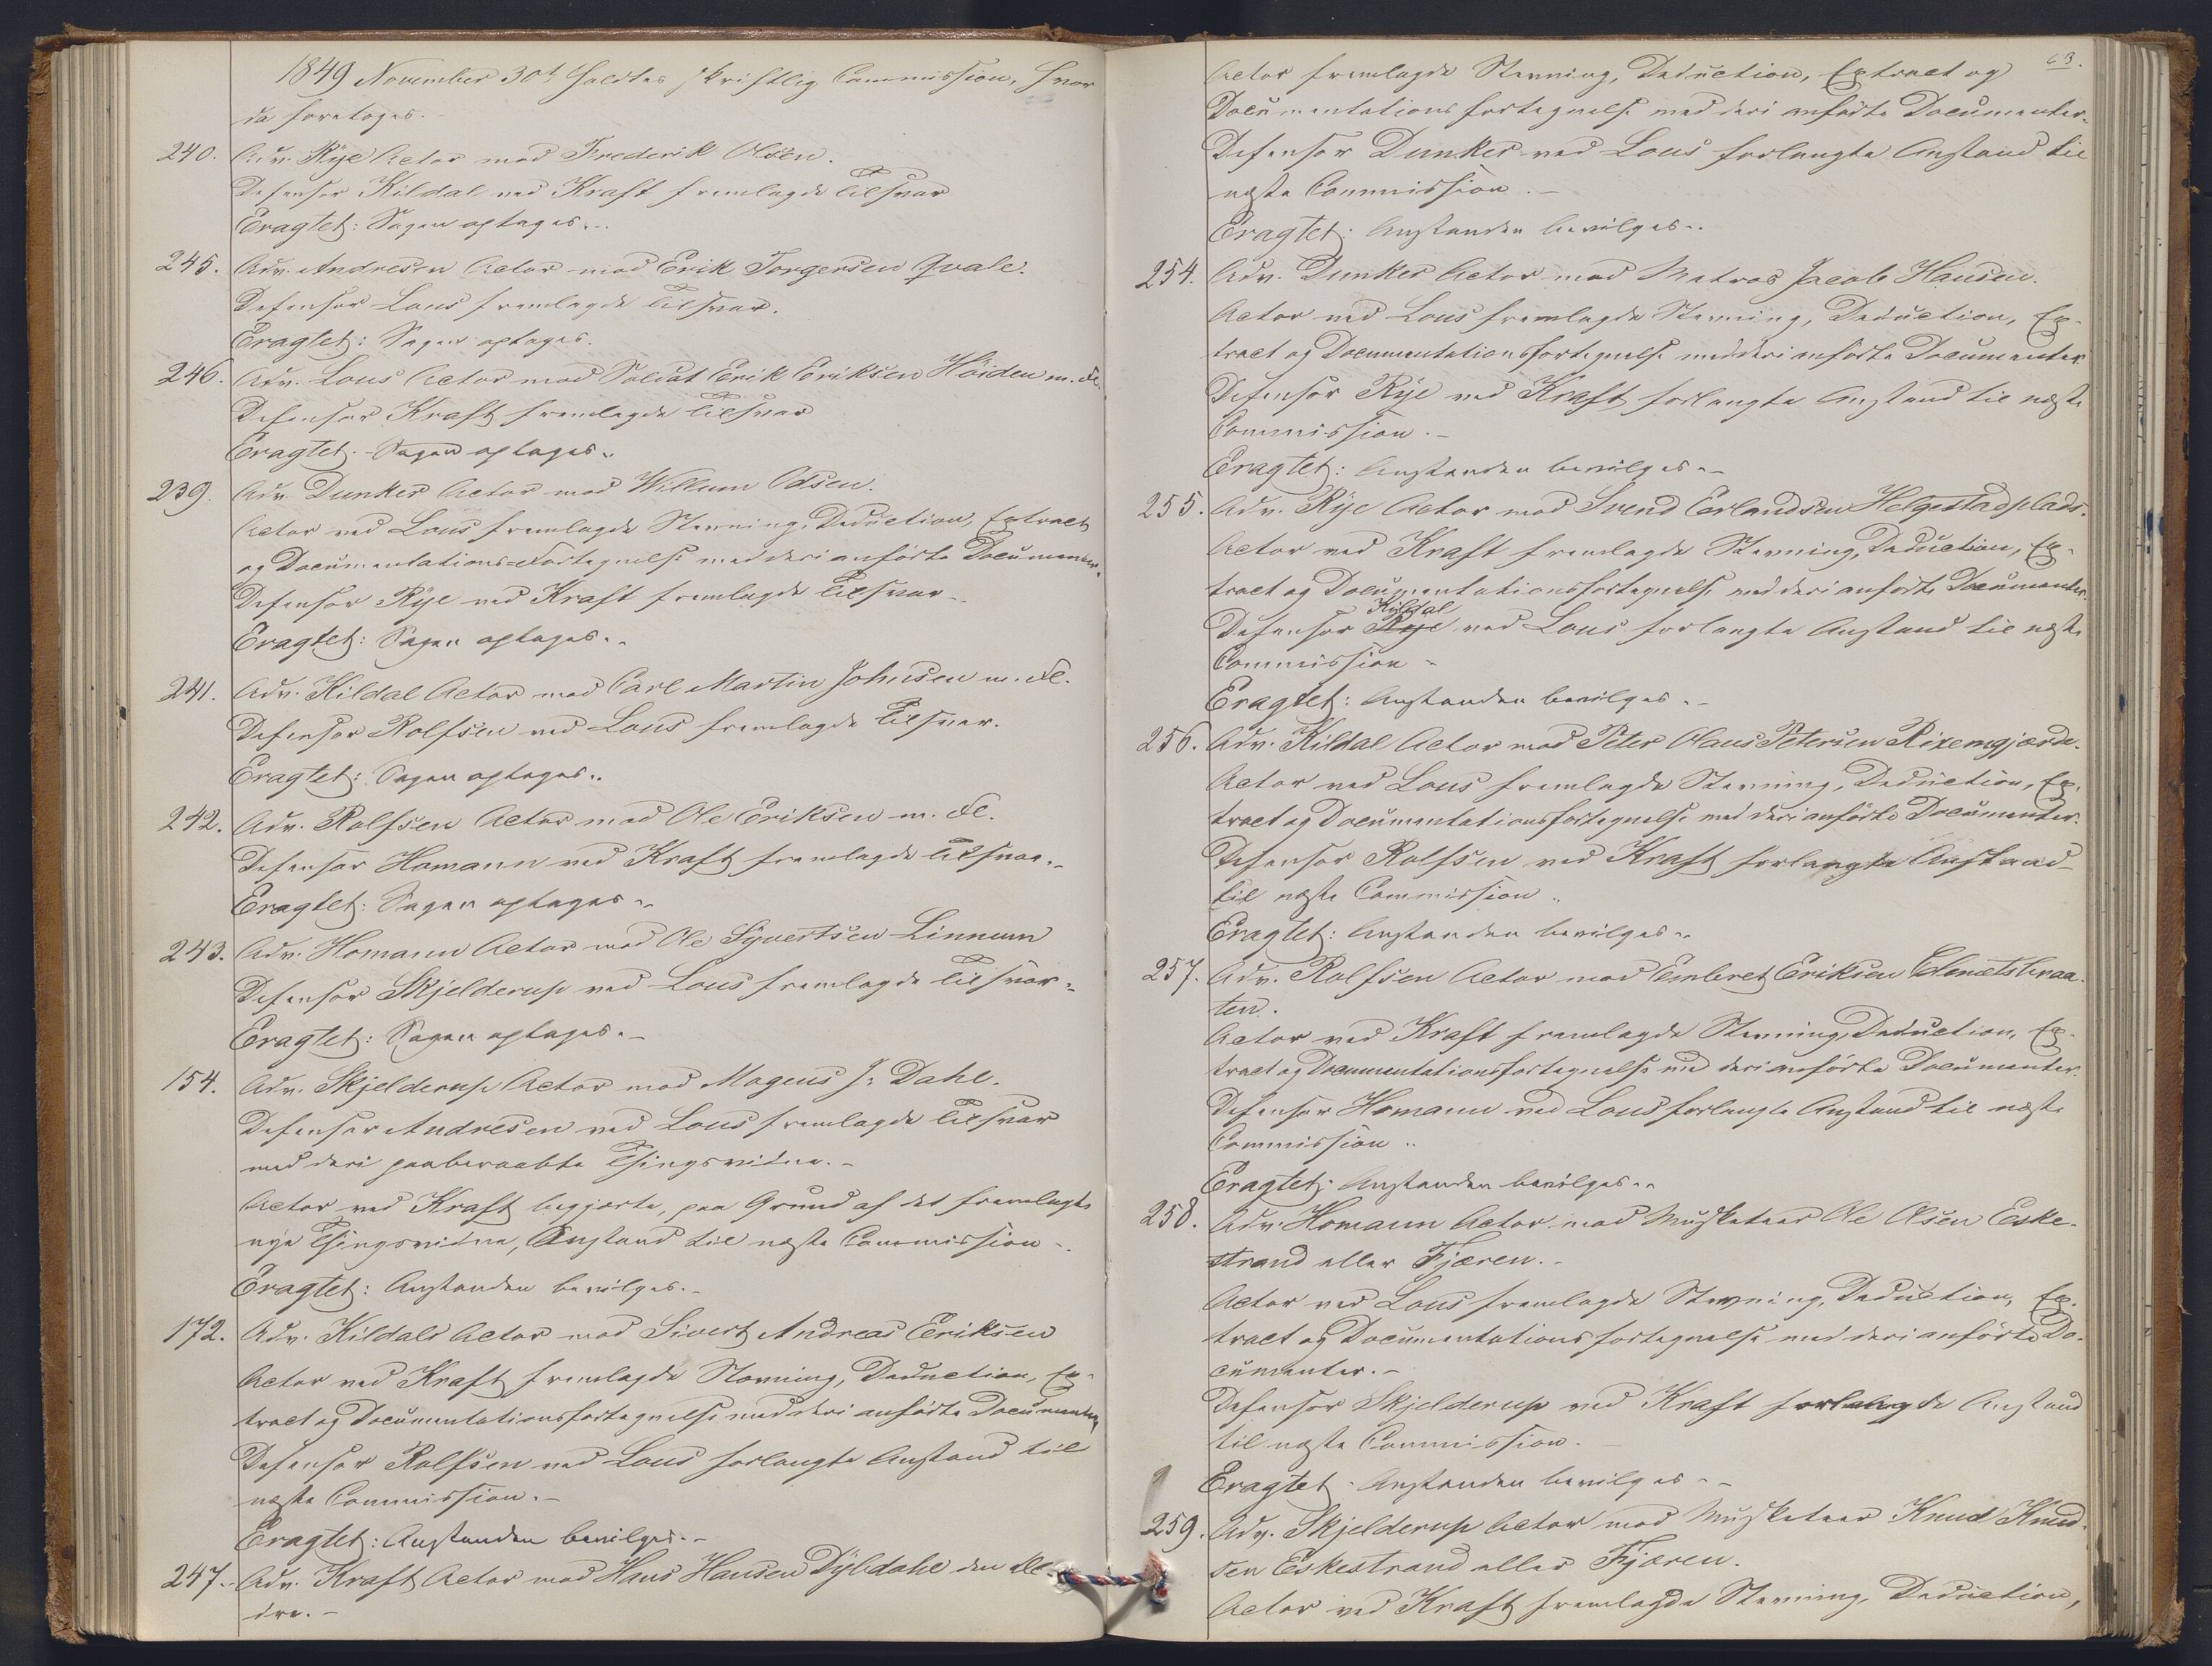 1849 November 30te holdtes skriftlig Commission, hvor
da foretoges.
240. Adv. Rye Actor mod Frederik Olsen.
Defensor Kildal ved Kraft fremlagde Tilsvar
Eragtet: Sagen optages.
245. Adv. Andresen Actor mod Erik Torgersen Qvale.
Defensor Lous fremlagde Tilsvar.
Eragtet: Sagen optages.
246. Adv. Lous Actor mod Soldat Erik Eriksen Höiden m. Fl.
Defensor Kraft fremlagde Tilsvar
Eragtet: Sagen optages.
239. Adv. Dunker Actor mod Willum Olsen.
Actor ved Lous fremlagde Stevning, Deduction, Extract
og Documentations-Fortegnelse med deri anførte Documenter.
Defensor Rye ved Kraft fremlagde Tilsvar.
Eragtet: Sagen optages.
241. Adv. Kildal Actor mod Carl Martin Johnsen m. Fl.
Defensor Rolfsen ved Lous fremlagde Tilsvar.
Eragtet: Sagen optages.
242. Adv. Rolfsen Actor mod Ole Eriksen m. Fl.
Defensor Homann ved Kraft fremlagde Tilsvar.
Eragtet: Sagen optages.
243. Adv. Homann Actor mod Ole Syvertsen Linnum
Defensor Skjelderup ved Lous fremlagde Tilsvar.
Eragtet: Sagen optages.
154. Adv. Skjelderup Actor mod Mogens J. Dahl.
Defensor Andresen ved Lous fremlagde Tilsvar
med deri paaberaabte Thingsvidne.
Actor ved Kraft begjærte, paa Grund af det fremlagte
nye Thingsvidne, Anstand til næste Commission.
Eragtet: Anstanden bevilges.
172. Adv. Kildals Actor mod Sivert Andreas Eriksen
Actor ved Kraft fremlagde Stevning, Deduction, Ex-
tract og Documentationsfortegnelse med deri anførte Documenter
Defensor Rolfsen ved Lous forlangte Anstand til
næste Commission.
Eragtet: Anstanden bevilges.
247. Adv. Kraft Actor mod Hans Hansen Dybdahl den Æl-
dre.
63.
Actor fremlagde Stevning, Deduction, Extract og
Documentationsfortegnelse med deri anførte Documenter.
Defensor Dunker ved Lous forlangte Anstand til
næste Commission.
Eragtet: Anstanden bevilges.
254. Adv. Dunker Actor mod Matros Jacob Hansen.
Actor ved Lous fremlagde Stevning, Deduction, Ex-
tract og Documentationsfortegnelse med deri anførte Documenter
Defensor Rye ved Kraft forlangte Anstand til næste
Commission.
Eragtet: Anstanden bevilges.
255. Adv. Rye Actor mod Svend Erlandsen Helgestadplads.
Actor ved Kraft fremlagde Stevning, Deduction, Ex-
tract og Documentationsfortegnelse med deri anførte Documenter.
Kildal
Defensor Rye ved Lous forlangte Anstand til næste
Commission
Eragtet: Anstanden bevilges.
256. Adv. Kildal Actor mod Peter Olaus Petersen Rixemgjærde.
Actor ved Lous fremlagde Stevning, Deduction, Ex-
tract og Documentationsfortegnelse med deri anførte Documenter.
Defensor Rolfsen ved Kraft forlangte Anstand
til næste Commission.
Eragtet: Anstanden bevilges.
257. Adv. Rolfsen Actor mod Embret Eriksen
ten.
Actor ved Kraft fremlagde Stevning, Deduction, Ex-
tract og Documentationsfortegnelse med deri anførte Documenter.
Defensor Homann ved Lous forlangte Anstand til næste
Commission.
Eragtet: Anstanden bevilges.
258. Adv. Homann Actor mod Musketeer Ole Olsen Eske-
strand eller Fjæren.
Actor ved Lous fremlagde Stevning, Deduction, Ex-
tract og Documentationsfortegnelse med deri anførte Do-
cumenter.
Defensor Skjelderup ved Kraft forlangte Anstand
til næste Commission.
Eragtet: Anstanden bevilges.
259. Adv. Skjelderup Actor mod Musketeer Knud Knud-
sen Eskestrand eller Fjæren.
Actor ved Kraft fremlagde Stevning, Deduction,